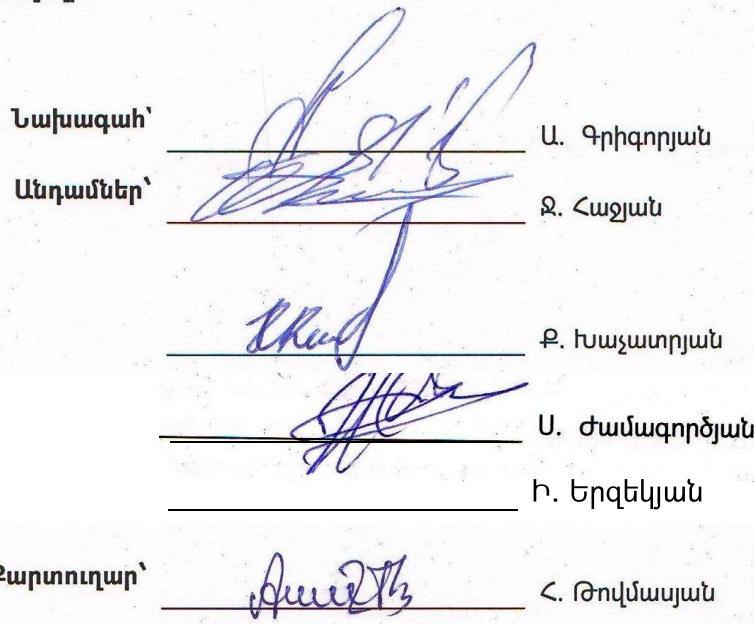 Նախագահ՝ Ա. Գրիգորյան
Անդամներ՝ Ջ. Հաջյան
Ք. Խաչատրյան
Ս. Ժամագործյան
Ի. Երզեկյան
Քարտուղար՝ Հ. Թովմասյան